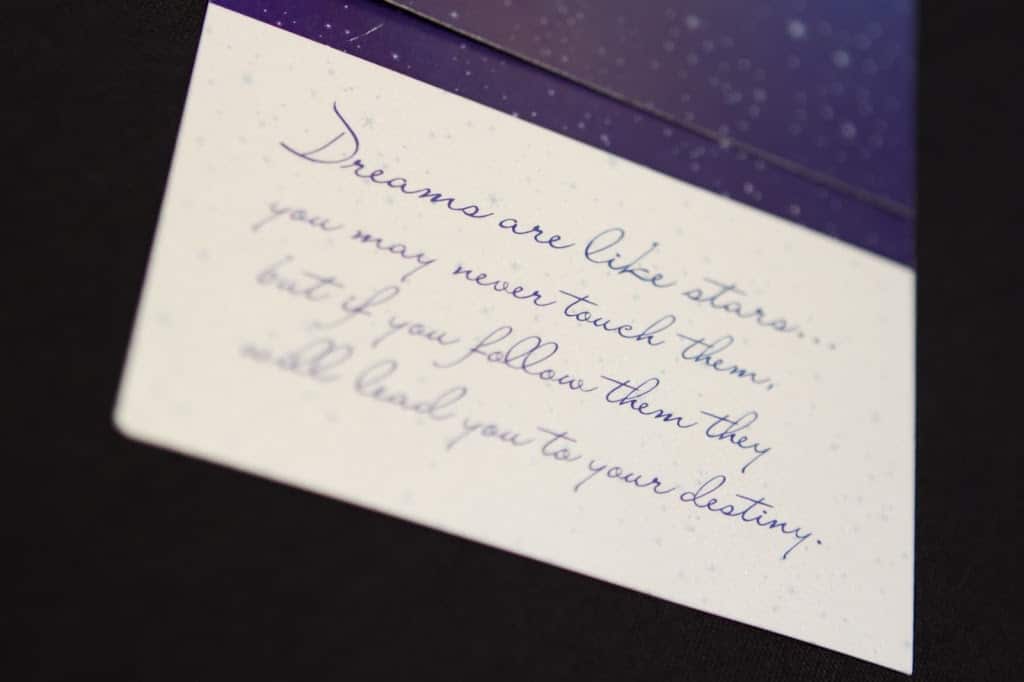 Dreams are like stars...
you may never touch them,
but if you follow them they
will lead you to your destiny.